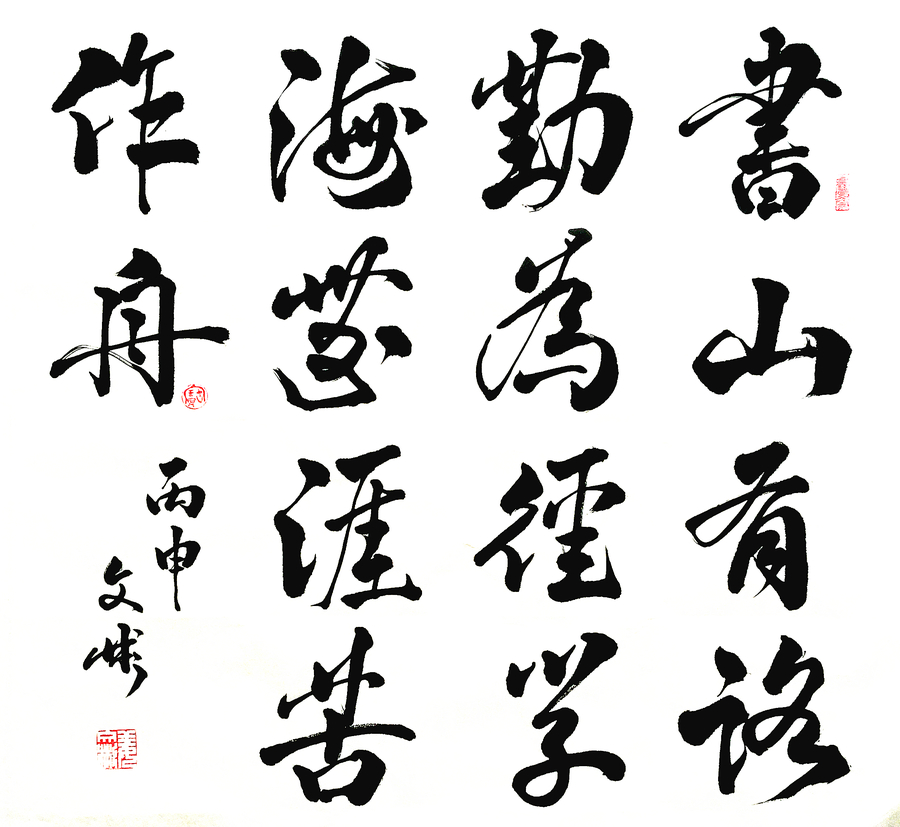 書山有路
勤為徑学
海無涯苦
作舟
丙申
文